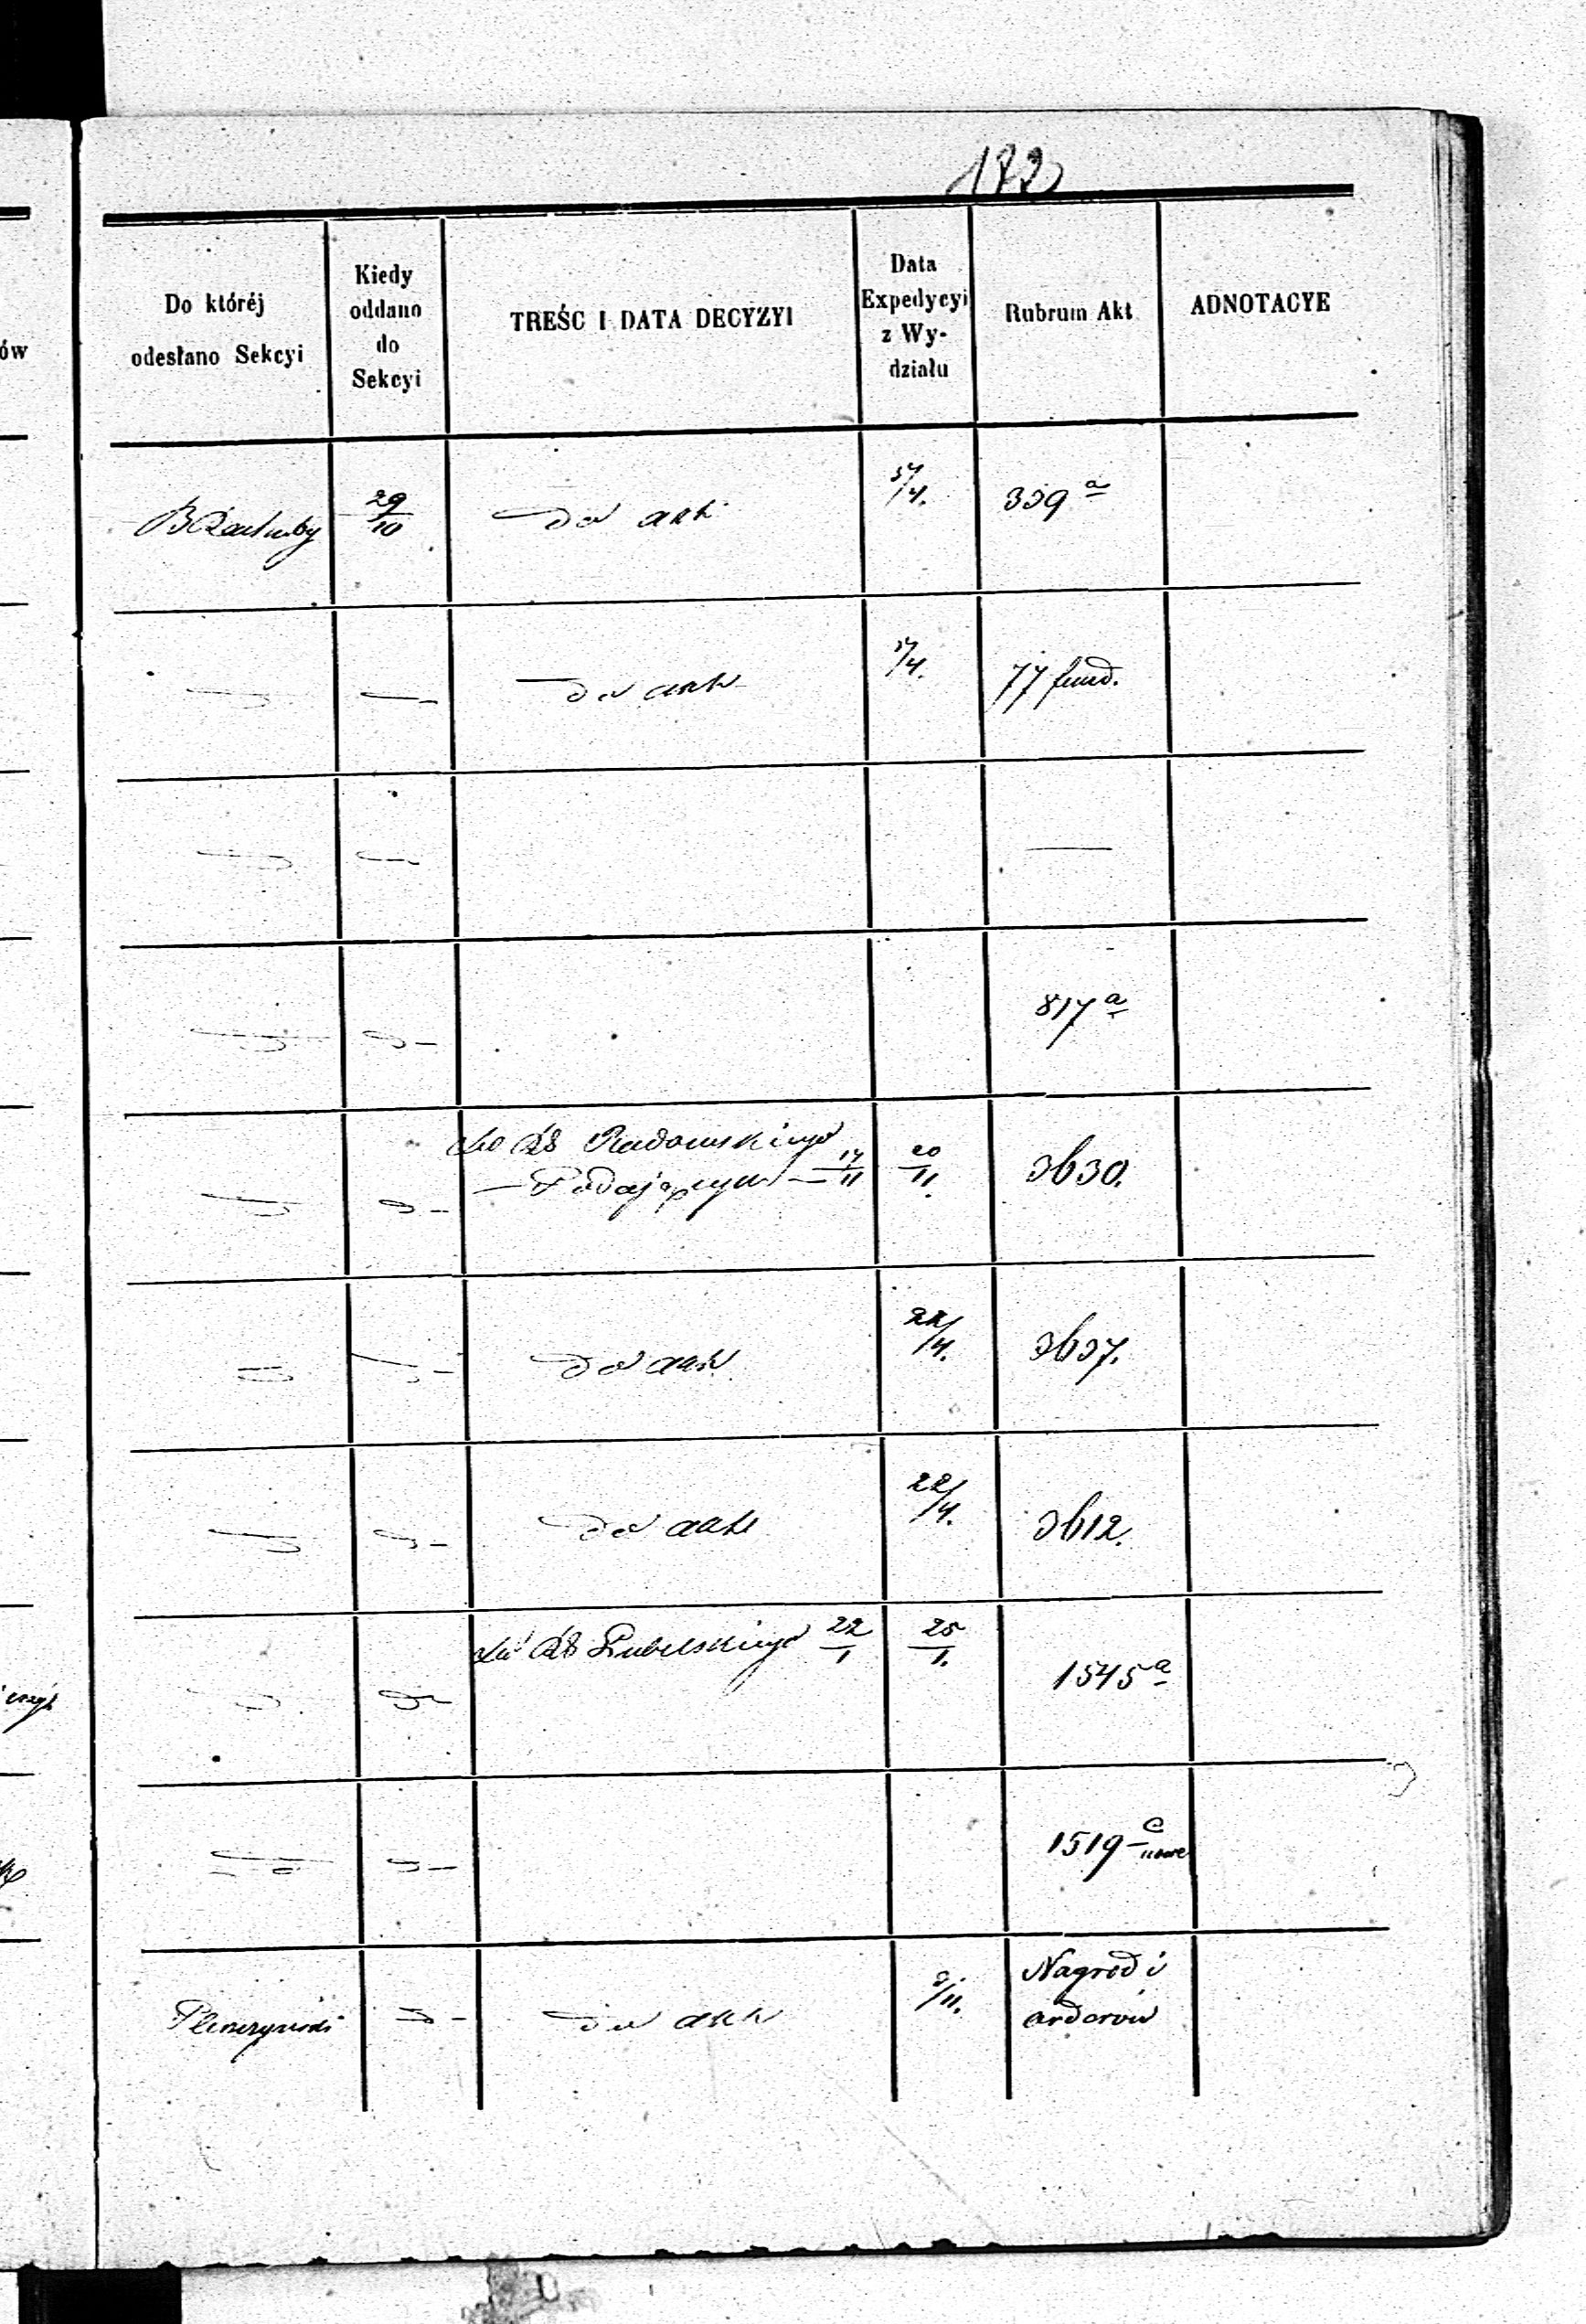 172
Do któréj
odesłano Sekcyi
Kiedy
oddano
do
Sekcyi
TREŚC I DATA DECYZYI
Data
Expedycyi
z Wy-
działu
Rubrum Akt
ADNOTACYE
ów
29/10
do akt
/4.
339 a
do akt
/4.
77 fund.
817 a
do Radomskiego
Podającym 17/11
20/11.
3630.
do akt
22/4.
3637.
do akt
22/4.
3612.
do Lubelskiego 22/1
25/1.
1545 a
1519 c
do akt
/11.
Nagród i
orderów